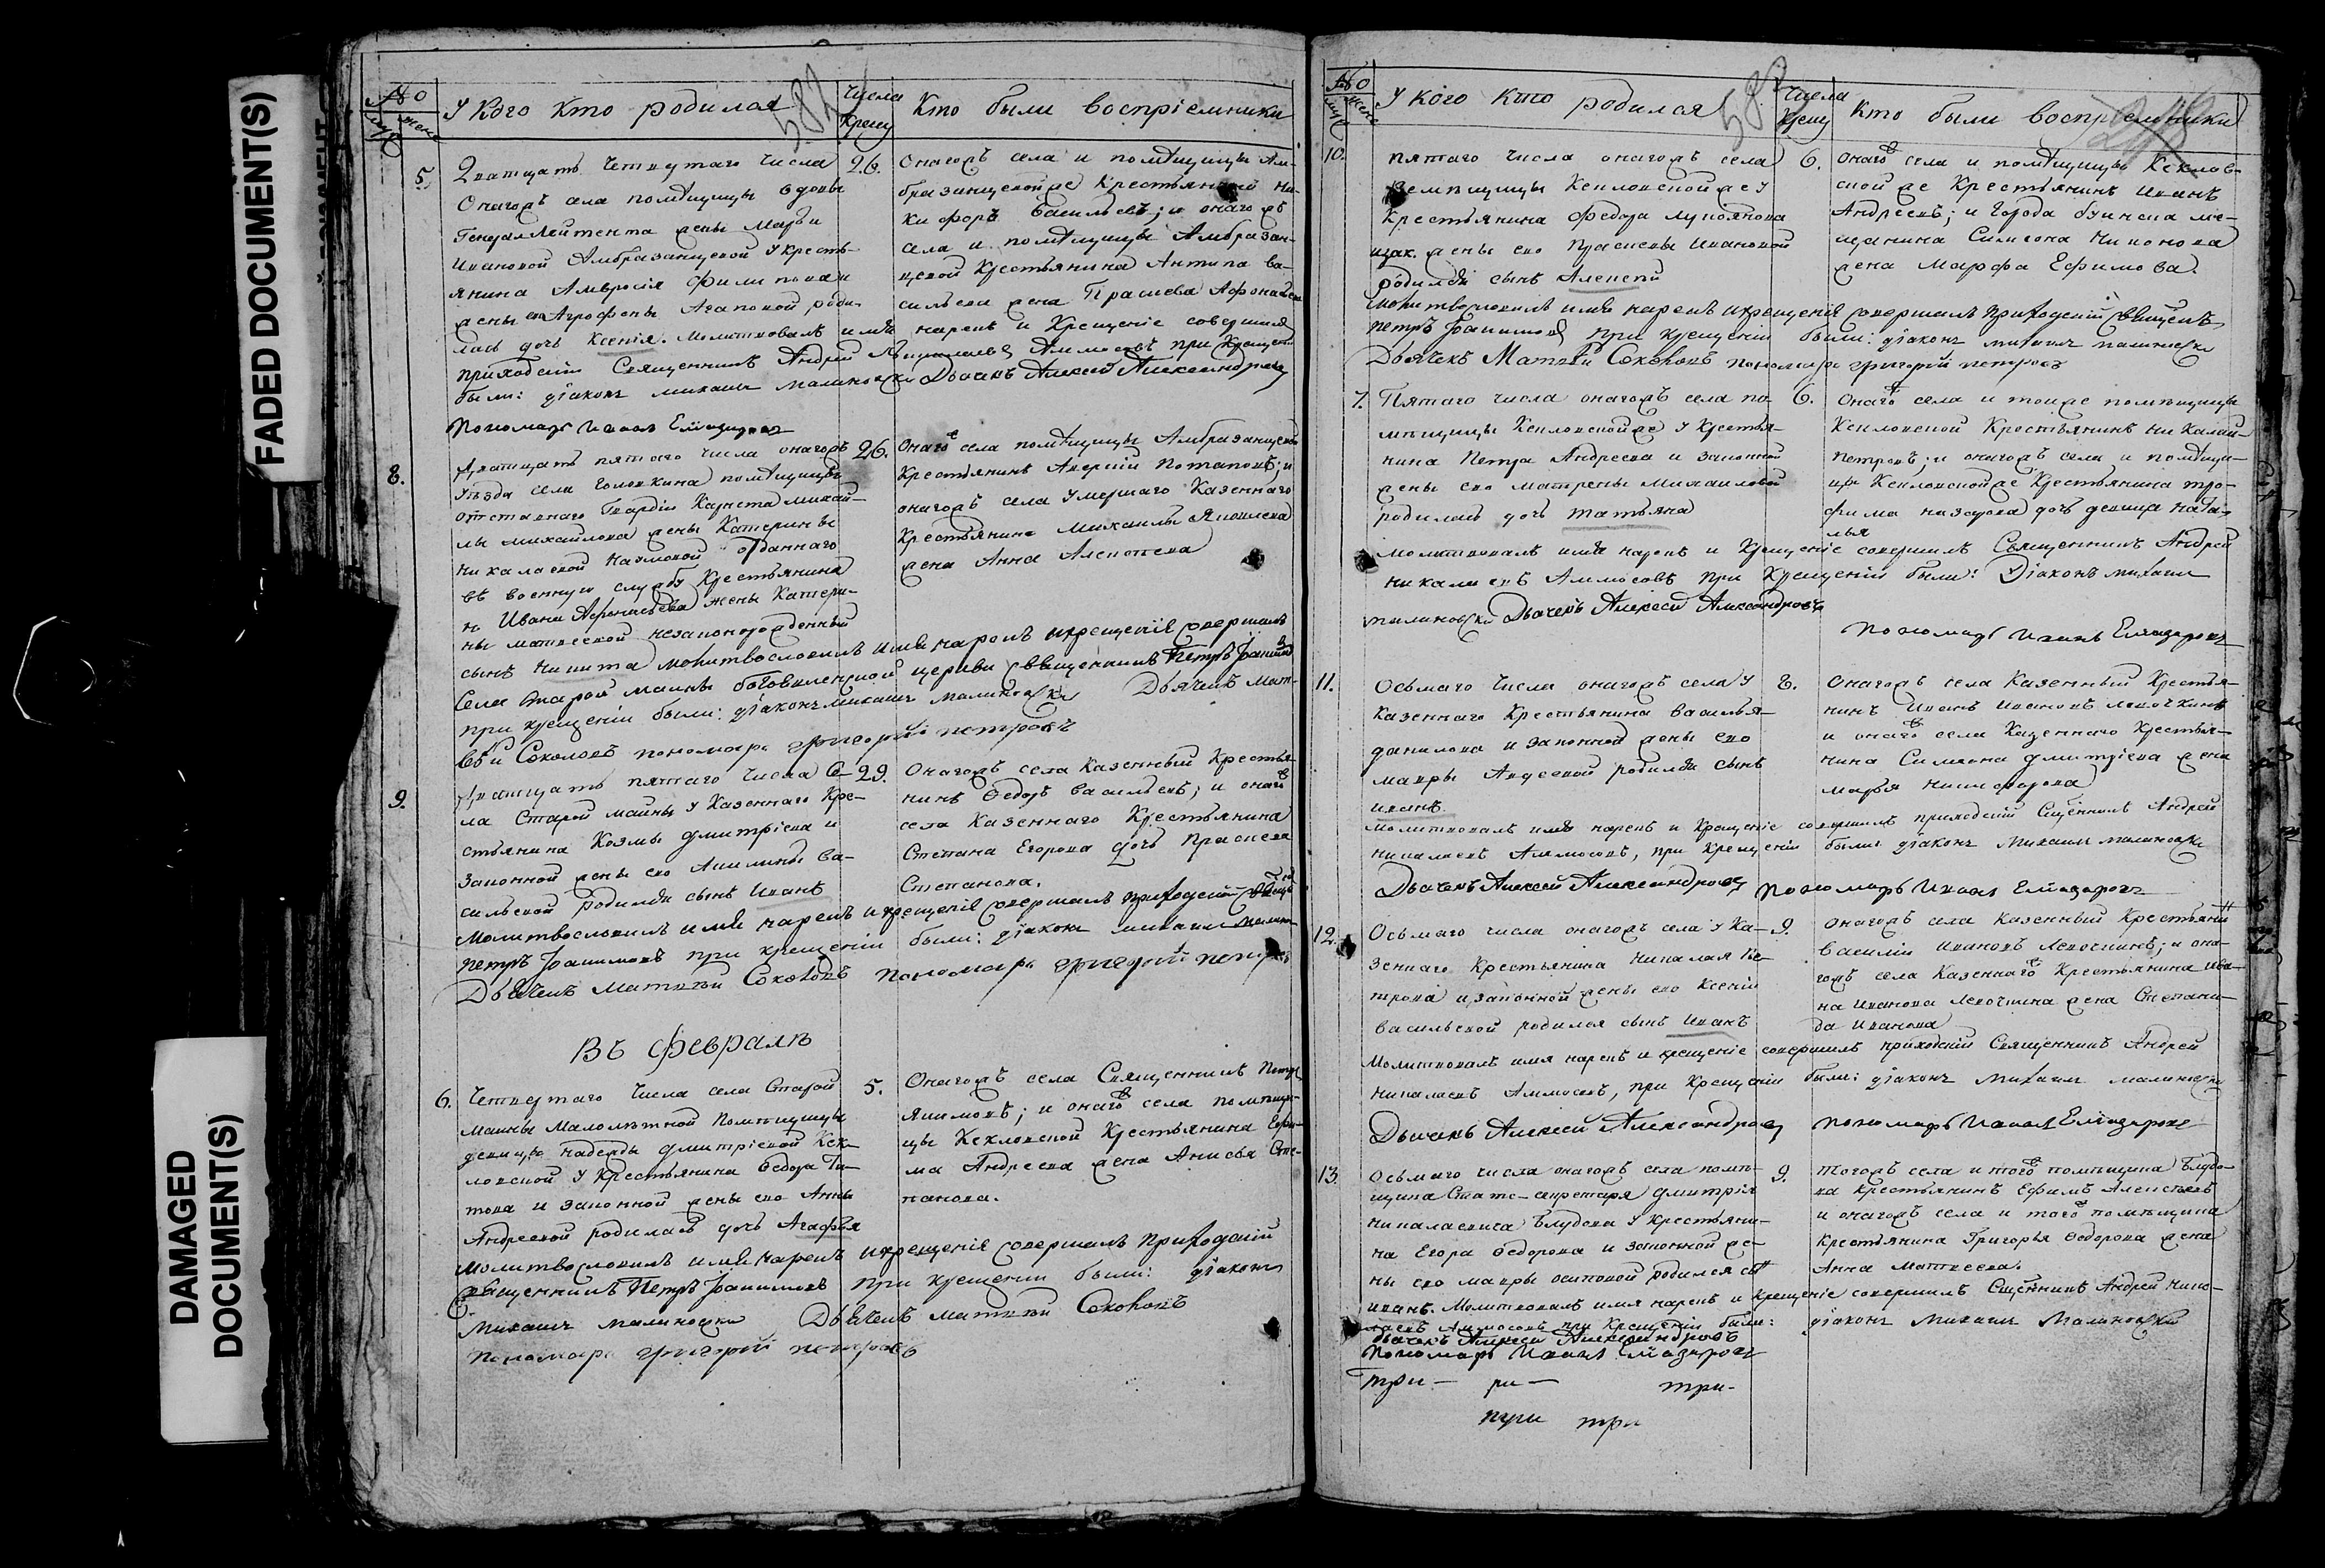 FADED DOCUMENT(S)
DAMAGED
DOCUMENT(S)
№
муж
женс
У кого кто родился
Числа
крещ
Кто были воспріемники
5.
Дватцать четвертаго числа
Онагожъ села помѣщицы вдовы
жены Марьи
Ивановой Амбразанцевой у кресть-
янина Амвросія Филипова и
жены его Агрофены Агаповой роди-
лась дочь Ксенія. Молитвовалъ имя нарекъ и Крещеніе совершилъ
приходскій Священникъ Андрей Николаевъ Аммосовъ при Крещеніи
были: діаконъ михаилъ малиновски Дьячекъ Алексей Александровъ
Пономарь Иванъ Елиазаровъ
26.
Онагожъ села и помѣщицы Ам-
бразанцевой же Крестьянинъ Ни-
кифоръ Васильевъ; и онагожъ
села и помѣщицы Амбразан-
цевой Крестьянина Антипа Ва-
сильева жена Прасковья
8.
Дватцать пятаго числа онагожъ
уѣзда села Головкина помѣщицы
отставнаго Гвардіи Карнета михай-
лы михайлова жены Катерины
Никалаевой Наумовой отданнаго
въ военную службу Крестьянина
Ивана Афонасьева жены Катери-
ны матвеевой незаконорожденный
сынъ Никита молитвословилъ имя нарекъ и крещеніе совершалъ
Села Старой маины богоявленской церкви священникъ Петръ Іоакимовъ
при крещеніи были: діаконъ михаилъ малиновски Дьячекъ Мат-
вѣй Соколовъ пономарь григорій петровъ
26.
Онаго села помѣщицы Амбразанцевой
Крестьянинъ Аверкій Потаповъ; и
онагожъ села умершаго Казеннаго
Крестьянина Михаилы Яковлева
жена Анна Алексеева
9.
Дватцать пятаго числа Се-
ла Старой маины у Казеннаго Кре-
стьянина Козмы Дмитріева и
Законной жены его Акилины Ва-
сильевой родился сынъ Иванъ
Молитвословилъ имя нарекъ и крещеніе совершалъ приходскій
Петръ Іоакимовъ при крещеніи были: діаконъ михаилъ
Дьячекъ Матвѣй Соколовъ пономарь григорій петровъ
29.
Онагожъ села Казенный Крестья-
нинъ Ѳедоръ Васильевъ; и онаго
села Казеннаго Крестьянина
Степана Егорова дочь Прасковья
Степанова.
Въ февралѣ
6.
Четвертаго числа села Старой
Маины Малолѣтной Помѣщицы
девицы надежды дмитріевой Кек-
ловской у Крестьянина Ѳедора Ти-
това и Законной жены его Анны
Андреевой родилась дочь Агафья
молитвословилъ имя нарекъ и крещеніе совершалъ приходскій
священникъ Петръ Іоакимовъ при крещеніи были: діаконъ
Михаилъ малиновски Дьячекъ матвѣй Соколовъ
пономарь григорій петровъ
5.
Онагожъ села Священникъ Петръ
Якимовъ; и онаго села помѣщи-
цы Кекловской Крестьянина Ефи-
ма Андреева жена Анисья Сте-
панова.
№
муж
женс
У кого кто родился
Числа
крещ
Кто были воспріемники
10.
пятаго числа онагожъ села
Кекловской же у
Крестьянина Федора Лукоянова
жены его Прасковьи Ивановой
родился сынъ Алексей
молитвословилъ имя нарекъ и крещеніе совершалъ приходскій священ
петръ Іоакимовъ при крещеніи были: діаконъ михаилъ малиновски
Дьячекъ Матвѣй Соколовъ пономарь григорій петровъ
6.
онаго села и помѣщицы Кеклов-
ской же Крестьянинъ Иванъ
Андреевъ; и города буинска ме-
щанина Симеона Никонова
жена Марфа Ефимова.
7.
Пятаго числа онагожъ села по-
мѣщицы Кекловской же у Крестья-
нина Петра Андреева и Законной
жены его матрены Михаиловой
родилась дочь татьяна
молитвовалъ имя нарекъ и Крещеніе совершилъ Священникъ Андрей
Никалаевъ Аммосовъ при Крещеніи были: Діаконъ михаилъ
малиновски Дьячекъ Алексей Александровъ
Пономарь Иванъ Елиазаровъ
6.
Онаго села и тоиже помѣщицы
Кекловской Крестьянинъ Никалай
петровъ; и онагожъ села и помѣщи-
цы Кекловской же Крестьянина тро-
фима назарова дочь девица ната-
лья
11.
Осьмаго числа онагожъ села у
Казеннаго Крестьянина Василья
данилова и законной жены его
мавры Авдеевой родился сынъ
иванъ
молитвовалъ имя нарекъ и Крещеніе совершилъ приходскій Сщенникъ Андрей
Никалаевъ Аммосовъ, при Крещеніи были: діаконъ Михаилъ малиновски
Дьячекъ Алексей Александровъ Пономарь Иванъ Елиазаровъ
8.
Онагожъ села Казенный Крестья-
нинъ Иванъ Ивановъ Левочкинъ
и онаго села Казеннаго Крестья-
нина Симеона дмитріева жена
марья Никифорова
12.
Осьмаго числа онагожъ села у Ка-
зеннаго Крестьянина Николая Пе-
трова и законной жены его Ксеніи
Васильевой родился сынъ Иванъ
Молитвовалъ имя нарекъ и крещеніе совершилъ приходскій Священникъ Андрей
Никалаевъ Аммосовъ, при Крещеніи были: діаконъ михаилъ малиновски
Дьячекъ Алексей Александровъ Пономарь Иванъ Елиазаровъ
9.
онагожъ села Казенный Крестьянинъ
Василій Ивановъ Левочкинъ; и она-
гожъ села Казеннаго Крестьянина Ива-
на Иванова Левочкина жена Степани-
да Иванова
13.
Осьмаго числа онагожъ села помѣ-
щика Статс-секретаря дмитрія
Николаевича Блудова у Крестьяни-
на Егора Ѳедорова и законной же-
ны его мавры осиповой родился сынъ
иванъ. Молитвовалъ имя нарекъ и Крещеніе совершилъ Сщенникъ Андрей Нико-
лаевъ Аммосовъ при Крещеніи были: діаконъ Михаилъ Малиновски
дьячекъ Алексей Александровъ
Пономарь Иванъ Елиазаровъ
9.
Тогожъ села и того помѣщика Блудо-
ва Крестьянинъ Ефимъ Алексеевъ
и онагожъ села и того помѣщика
Крестьянина Григорья Ѳедорова жена
Анна Матвеева.
три- ри- три-
три три